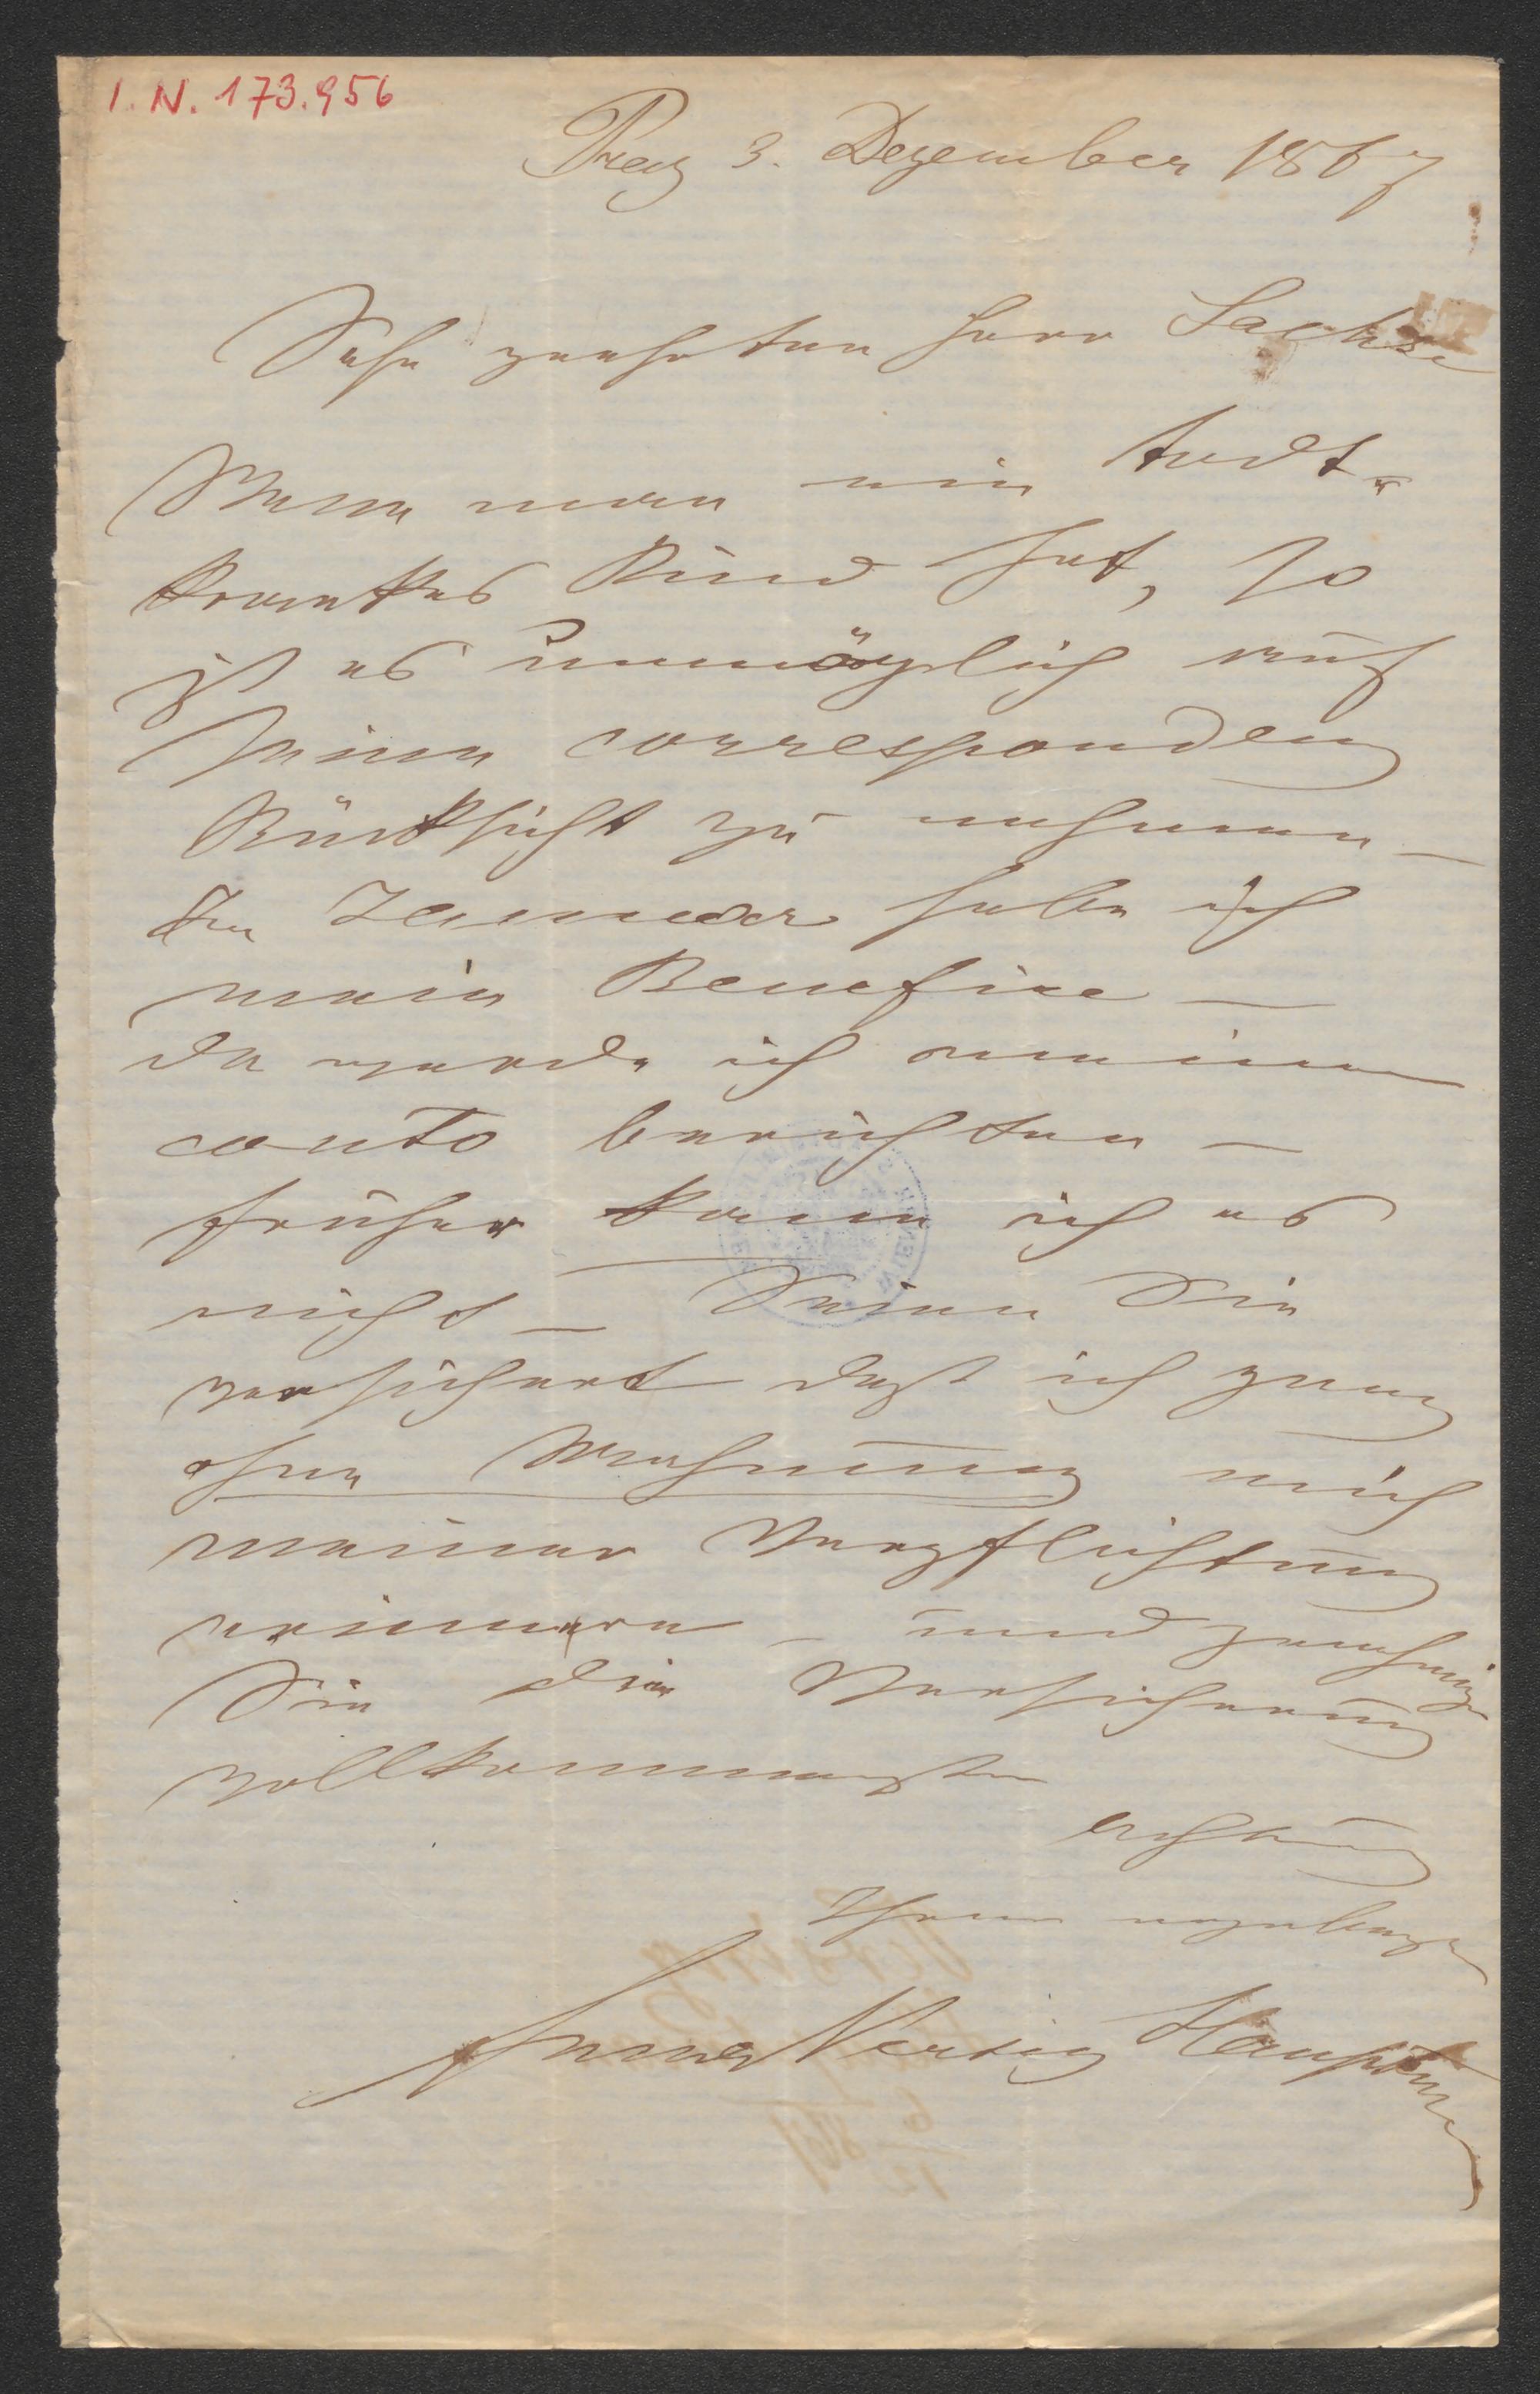 I. N. 173.956
Prag 3. Dezember 1867
Sehr geehrter Herr Sachse
Wenn man ein todt-
krankes Kind hat, so
ist es unmöglich auf
seine correspondenz
Rücksicht zu nehmen –
Im Januar habe ich
mein Benefice –
da werde ich meinen
conto berichten –
früher kann ich es
nicht – Seien Sie
versichert daß ich genug
ohne Mahnung mich
meiner Verpflichtung
erinnere – und genehmigen
Sie die Versicherung
vollkommenster
Achtung
Ihrer ergebenen
Anna Versing Hauptmann